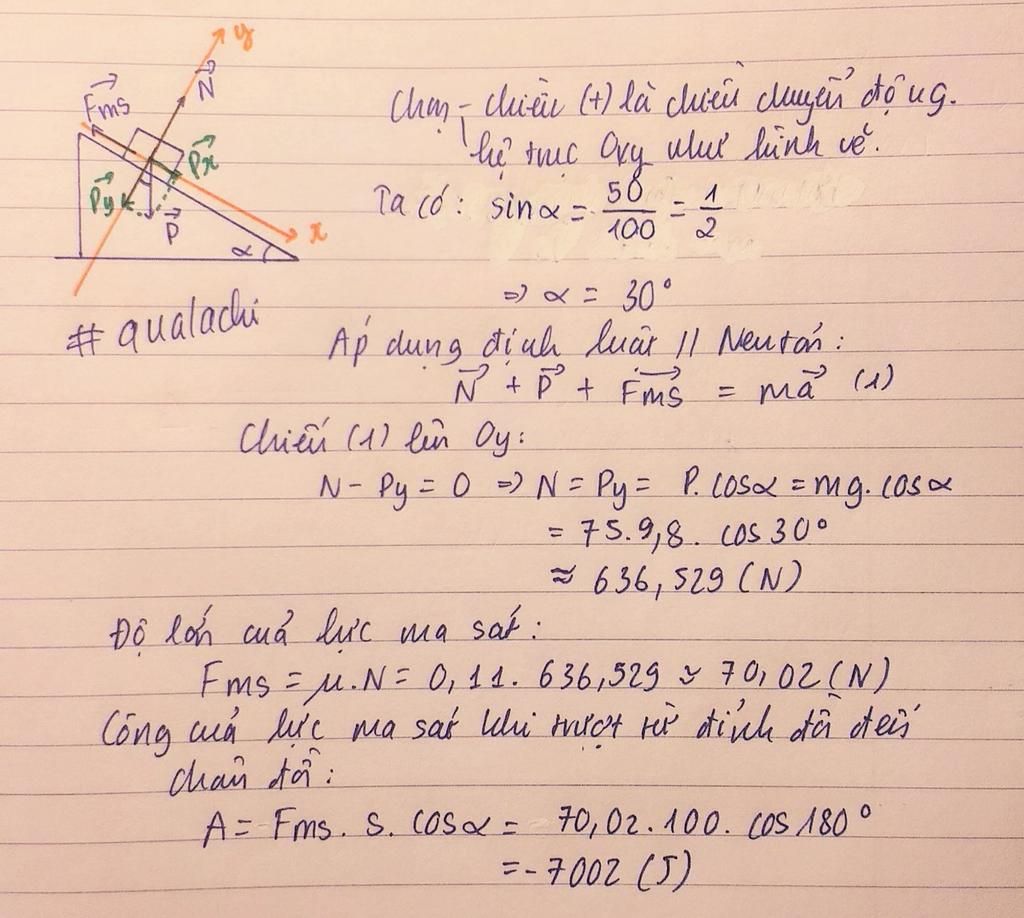 y
N
Fms
Px
Py
P
x
α
#qualachi
Chọn - chiều (+) là chiều chuyển động.
hệ trục Oxy như hình vẽ.
Ta có: sinα = 50/100 = 1/2
=> α = 30°
Áp dụng định luật II Newtơn:
N + P + Fms = ma (1)
Chiếu (1) lên Oy:
N - Py = 0 => N = Py = P.cosα = mg.cosα
= 75.9,8. cos30°
≈ 636,529 (N)
Độ lớn của lực ma sát:
Fms = μ.N = 0,11. 636,529 ≈ 70,02 (N)
Công của lực ma sát khi trượt từ đỉnh đồi đến
chân đồi:
A = Fms. s. cosα = 70,02.100. cos180°
= -7002 (J)